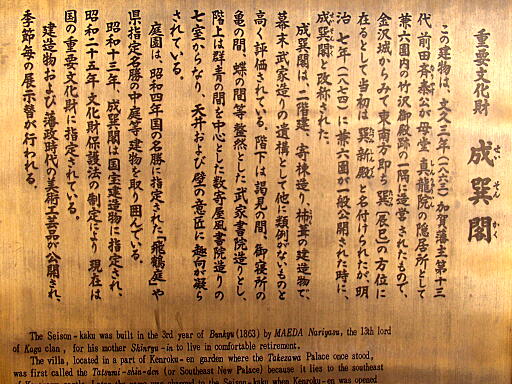 重要文化財
成巽閣
せい そん かく
この建物は、文久三年(一八六三)加賀藩主第十三
代 前田斉泰公が母堂 真龍院の隠居所として
兼六園内の竹沢御殿跡の一隅に造営されたもので、
金沢城からみて東南方即ち巽(辰巳)の方位に
在るとして当初は巽新殿と名付けられたが明
治 七年(一八七四)に兼六園が一般公開された時に、
成巽閣と改称された。
成巽閣は、二階建、寄棟造り、柿葺の建造物で、
幕末武家造りの遺構として他に類例がないものと
高く評価されている 階下は謁見の間、御寝所の
亀の間、蝶の間等 整然とした武家書院造りとし、
階上は群青の間を中心とした数寄屋風書院造りの
七室からなり、天井および壁の意匠に 趣向が凝ら
されている。
庭園は、昭和四年国の名勝に指定された「飛鶴庭」や
県指定名勝の中庭等建物を取り囲んでいる。
昭和十三年、成巽閣は国宝建造物に指定され、
昭和二十五年 文化財保護法の制定により、現在は
国の重要文化財に指定されている。
建造物および藩政時代の美術工芸品が公開され、
季節毎の展示替が行われる。
The Seison-kaku was built in the 3rd year of Bunkyu (1863) by MAEDA Nariyasu, the 13th lord
of Kaga clan, for his mother Shinryu-in to live in comfortable retirement.
The villa, located in a part of Kenroku-en garden where the Takezawa Palace once stood,
was first called the Tatsumi-shin-den (or Southeast New Palace) because it lies to the southeast
the Seison-kaku when Kenroku-en was opened